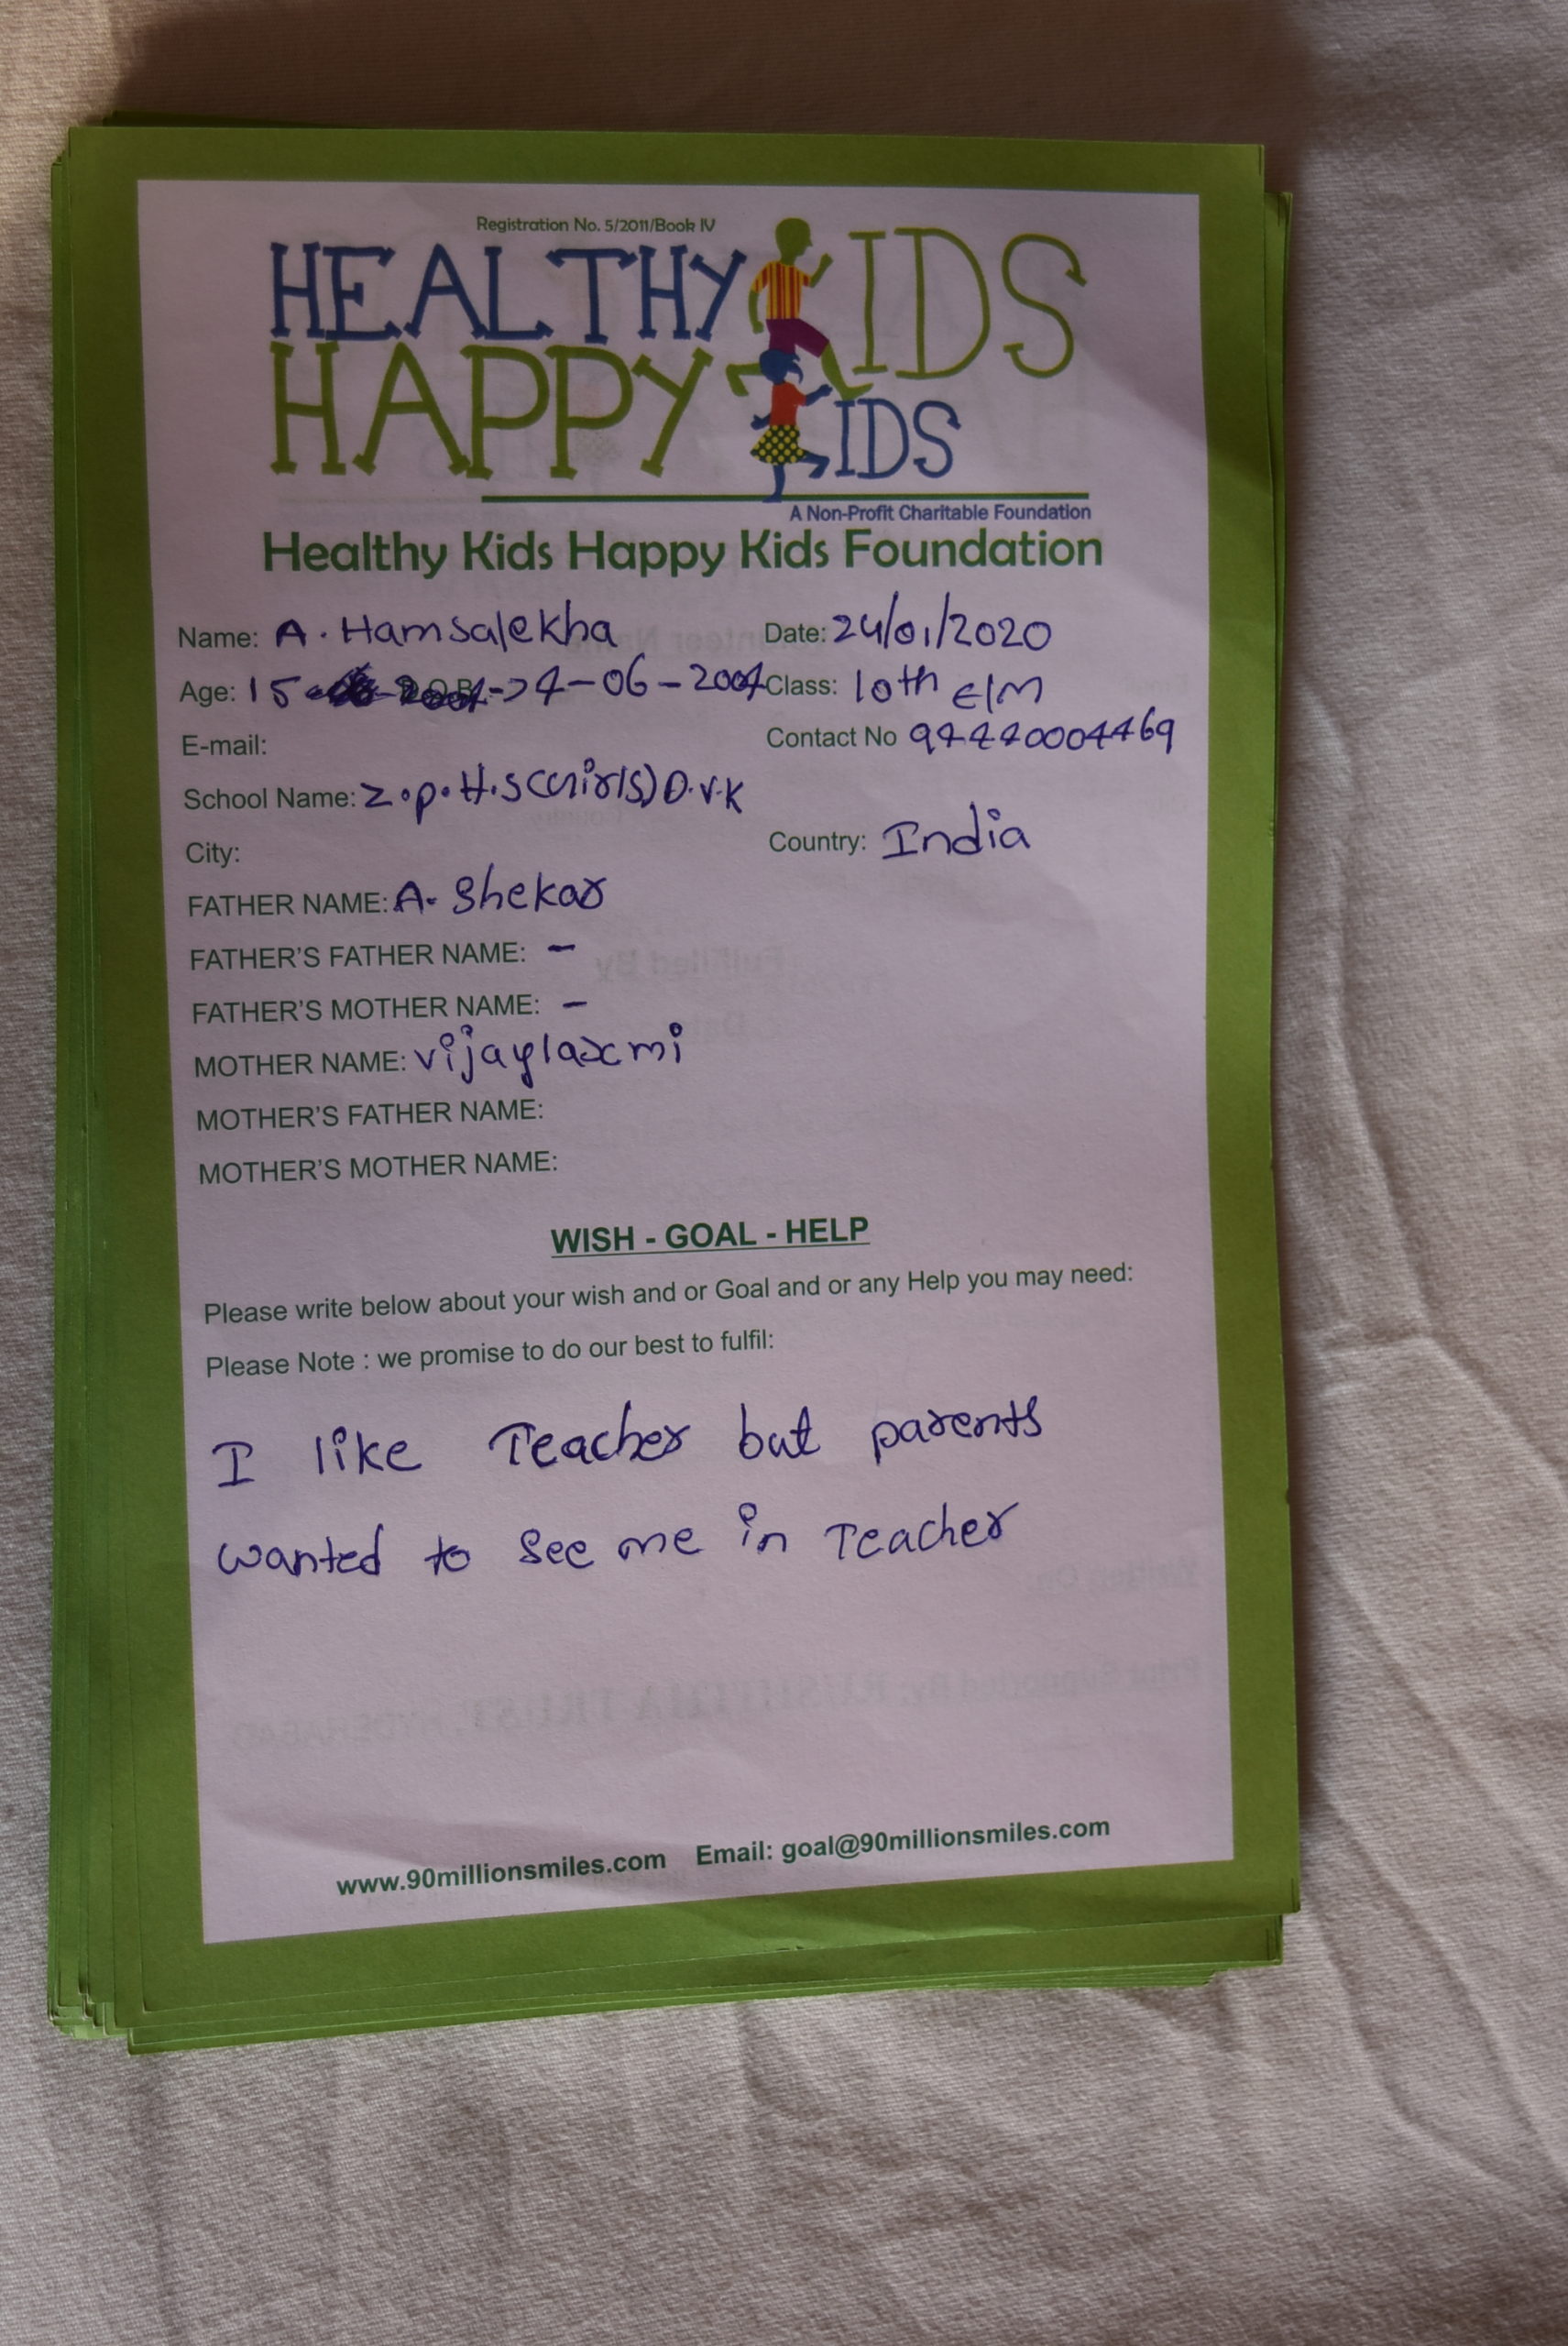 Registration No. 5/2011/Book IV
HEALTHY KIDS
HAPPY KIDS
A Non-Profit Charitable Foundation
Healthy Kids Happy Kids Foundation
Name: A. Hamsalekha Date: 24/01/2020
Age: 15 D.O.B -> 4-06-2004 Class: 10th E/M
E-mail: Contact No 94440004469
School Name: Z.p.H.S(Girls) D.V.K
City: Country: India
FATHER NAME: A. Shekar
FATHER'S FATHER NAME: -
FATHER'S MOTHER NAME: -
MOTHER NAME: vijaylaxmi
MOTHER'S FATHER NAME:
MOTHER'S MOTHER NAME:
WISH - GOAL - HELP
Please write below about your wish and or Goal and or any Help you may need:
Please Note : we promise to do our best to fulfil:
I like Teacher but parents
wanted to see me in Teacher
www.90millionsmiles.com Email: goal@90millionsmiles.com